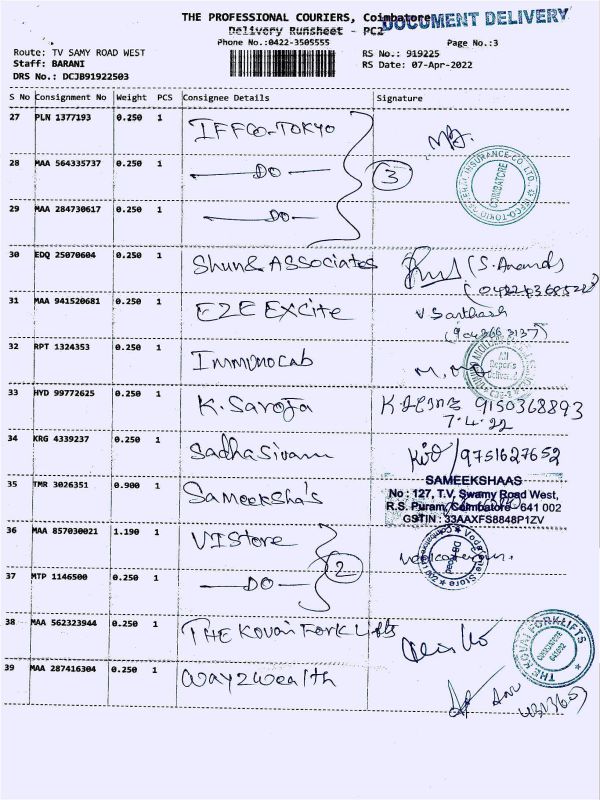 THE PROFESSIONAL COURIERS, Coimbatore
DOCUMENT DELIVERY
Delivery Runsheet - PC2
Phone No.:0422-3505555
Page No.:3
Route: TV SAMY ROAD WEST
RS No.: 919225
Staff: BARANI
RS Date: 07-Apr-2022
DRS No.: DCJB91922503
S No Consignment No Weight PCS Consignee Details Signature
27 PLN 1377193 0.250 1 IFFCO-TOKYO
28 MAA 564335737 0.250 1 DO
3
COIMBATORE
29 MAA 284730617 0.250 1 DO
30 EDQ 25070604 0.250 1 Shun& Associates (S. Anand)
31 MAA 941520681 0.250 1 EZE Excite V Sarthash
32 RPT 1324353 0.250 1 Immunocab
33 HYD 99772625 0.250 1 K. Saroja 9150368893
7.4.22
34 KRG 4339237 0.250 1 Sadhasivam 9751627652
35 TMR 3026351 0.900 1 Sameeksha's
SAMEEKSHAAS
No : 127, T.V. Swamy Road West,
R.S. Puram, Coimbatore - 641 002
GSTIN : 33AAXFS8848P1ZV
36 MAA 857030021 1.190 1 VI Store
2
37 MTP 1146500 0.250 1 DO
38 MAA 562323944 0.250 1 THE Kovai Fork Lifts
THE KOVAI FORK LIFTS
COIMBATORE
641002
39 MAA 287416304 0.250 1 Way2Wealth